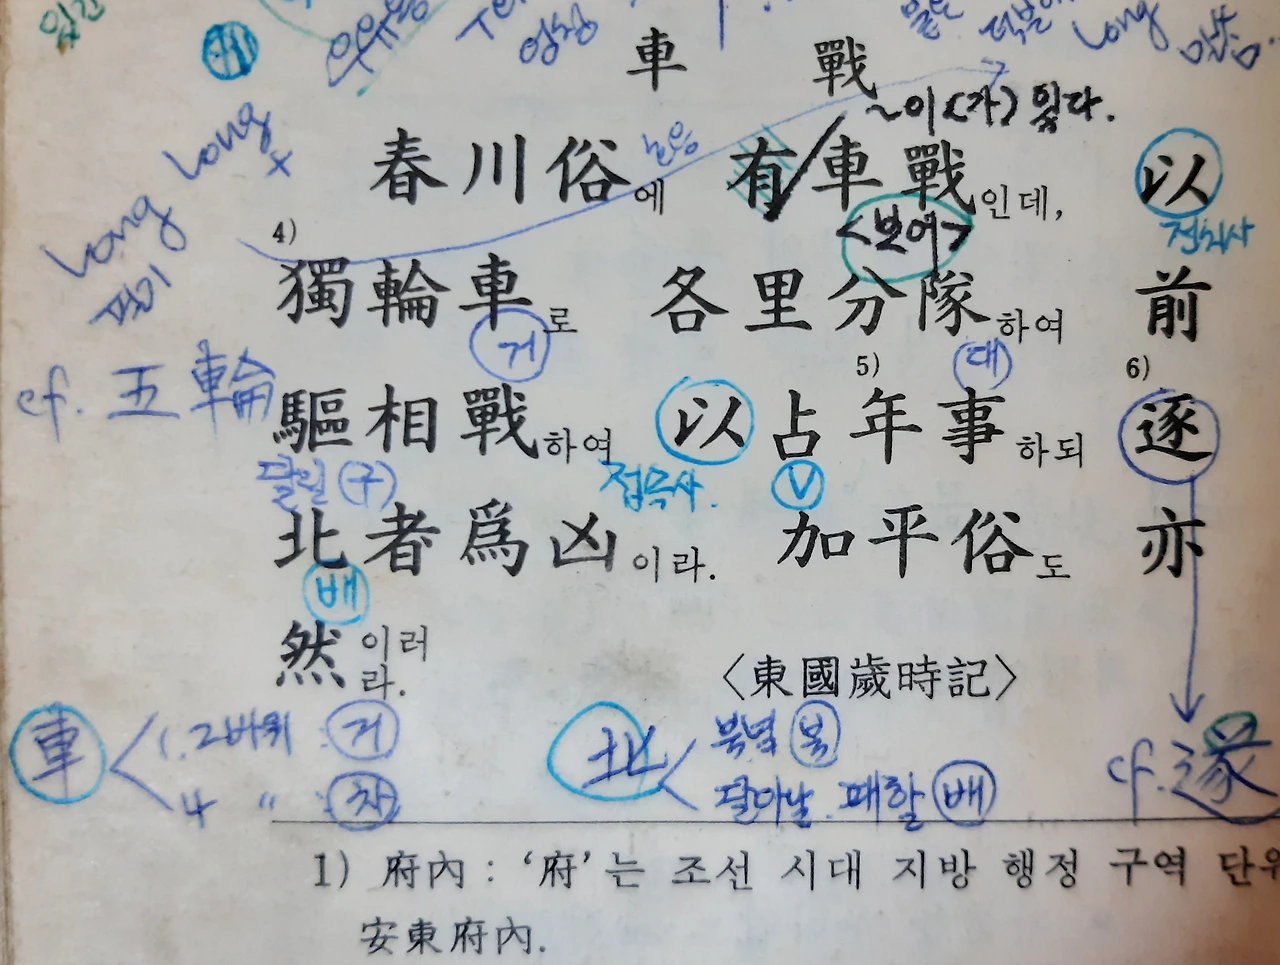 車 戰
~이(가) 있다.
春川俗에 有/車戰인데, 以
접미사
<보어>
4) 獨輪車로 各里分隊하여 前
거
대
cf. 五輪
5) 6)
驅相戰하여 以占年事하되 逐
달릴 (구) 접속사. V
北者爲凶이라. 加平俗도 亦
배
然이러라.
〈東國歲時記〉
車 1. 2바퀴 : 거
4 〃 : 차
北 북녘 북
달아날. 패할 배
cf. 遂
1) 府內 : ‘府’는 조선 시대 지방 행정 구역 단위
安東府內.
Long
Long
Long